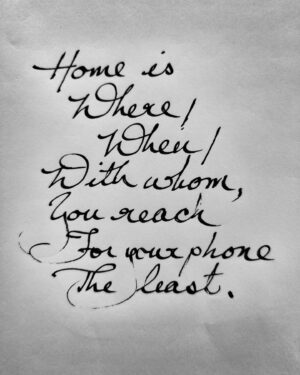 Home is
Where/
When/
With whom,
You reach
For your phone
The least.